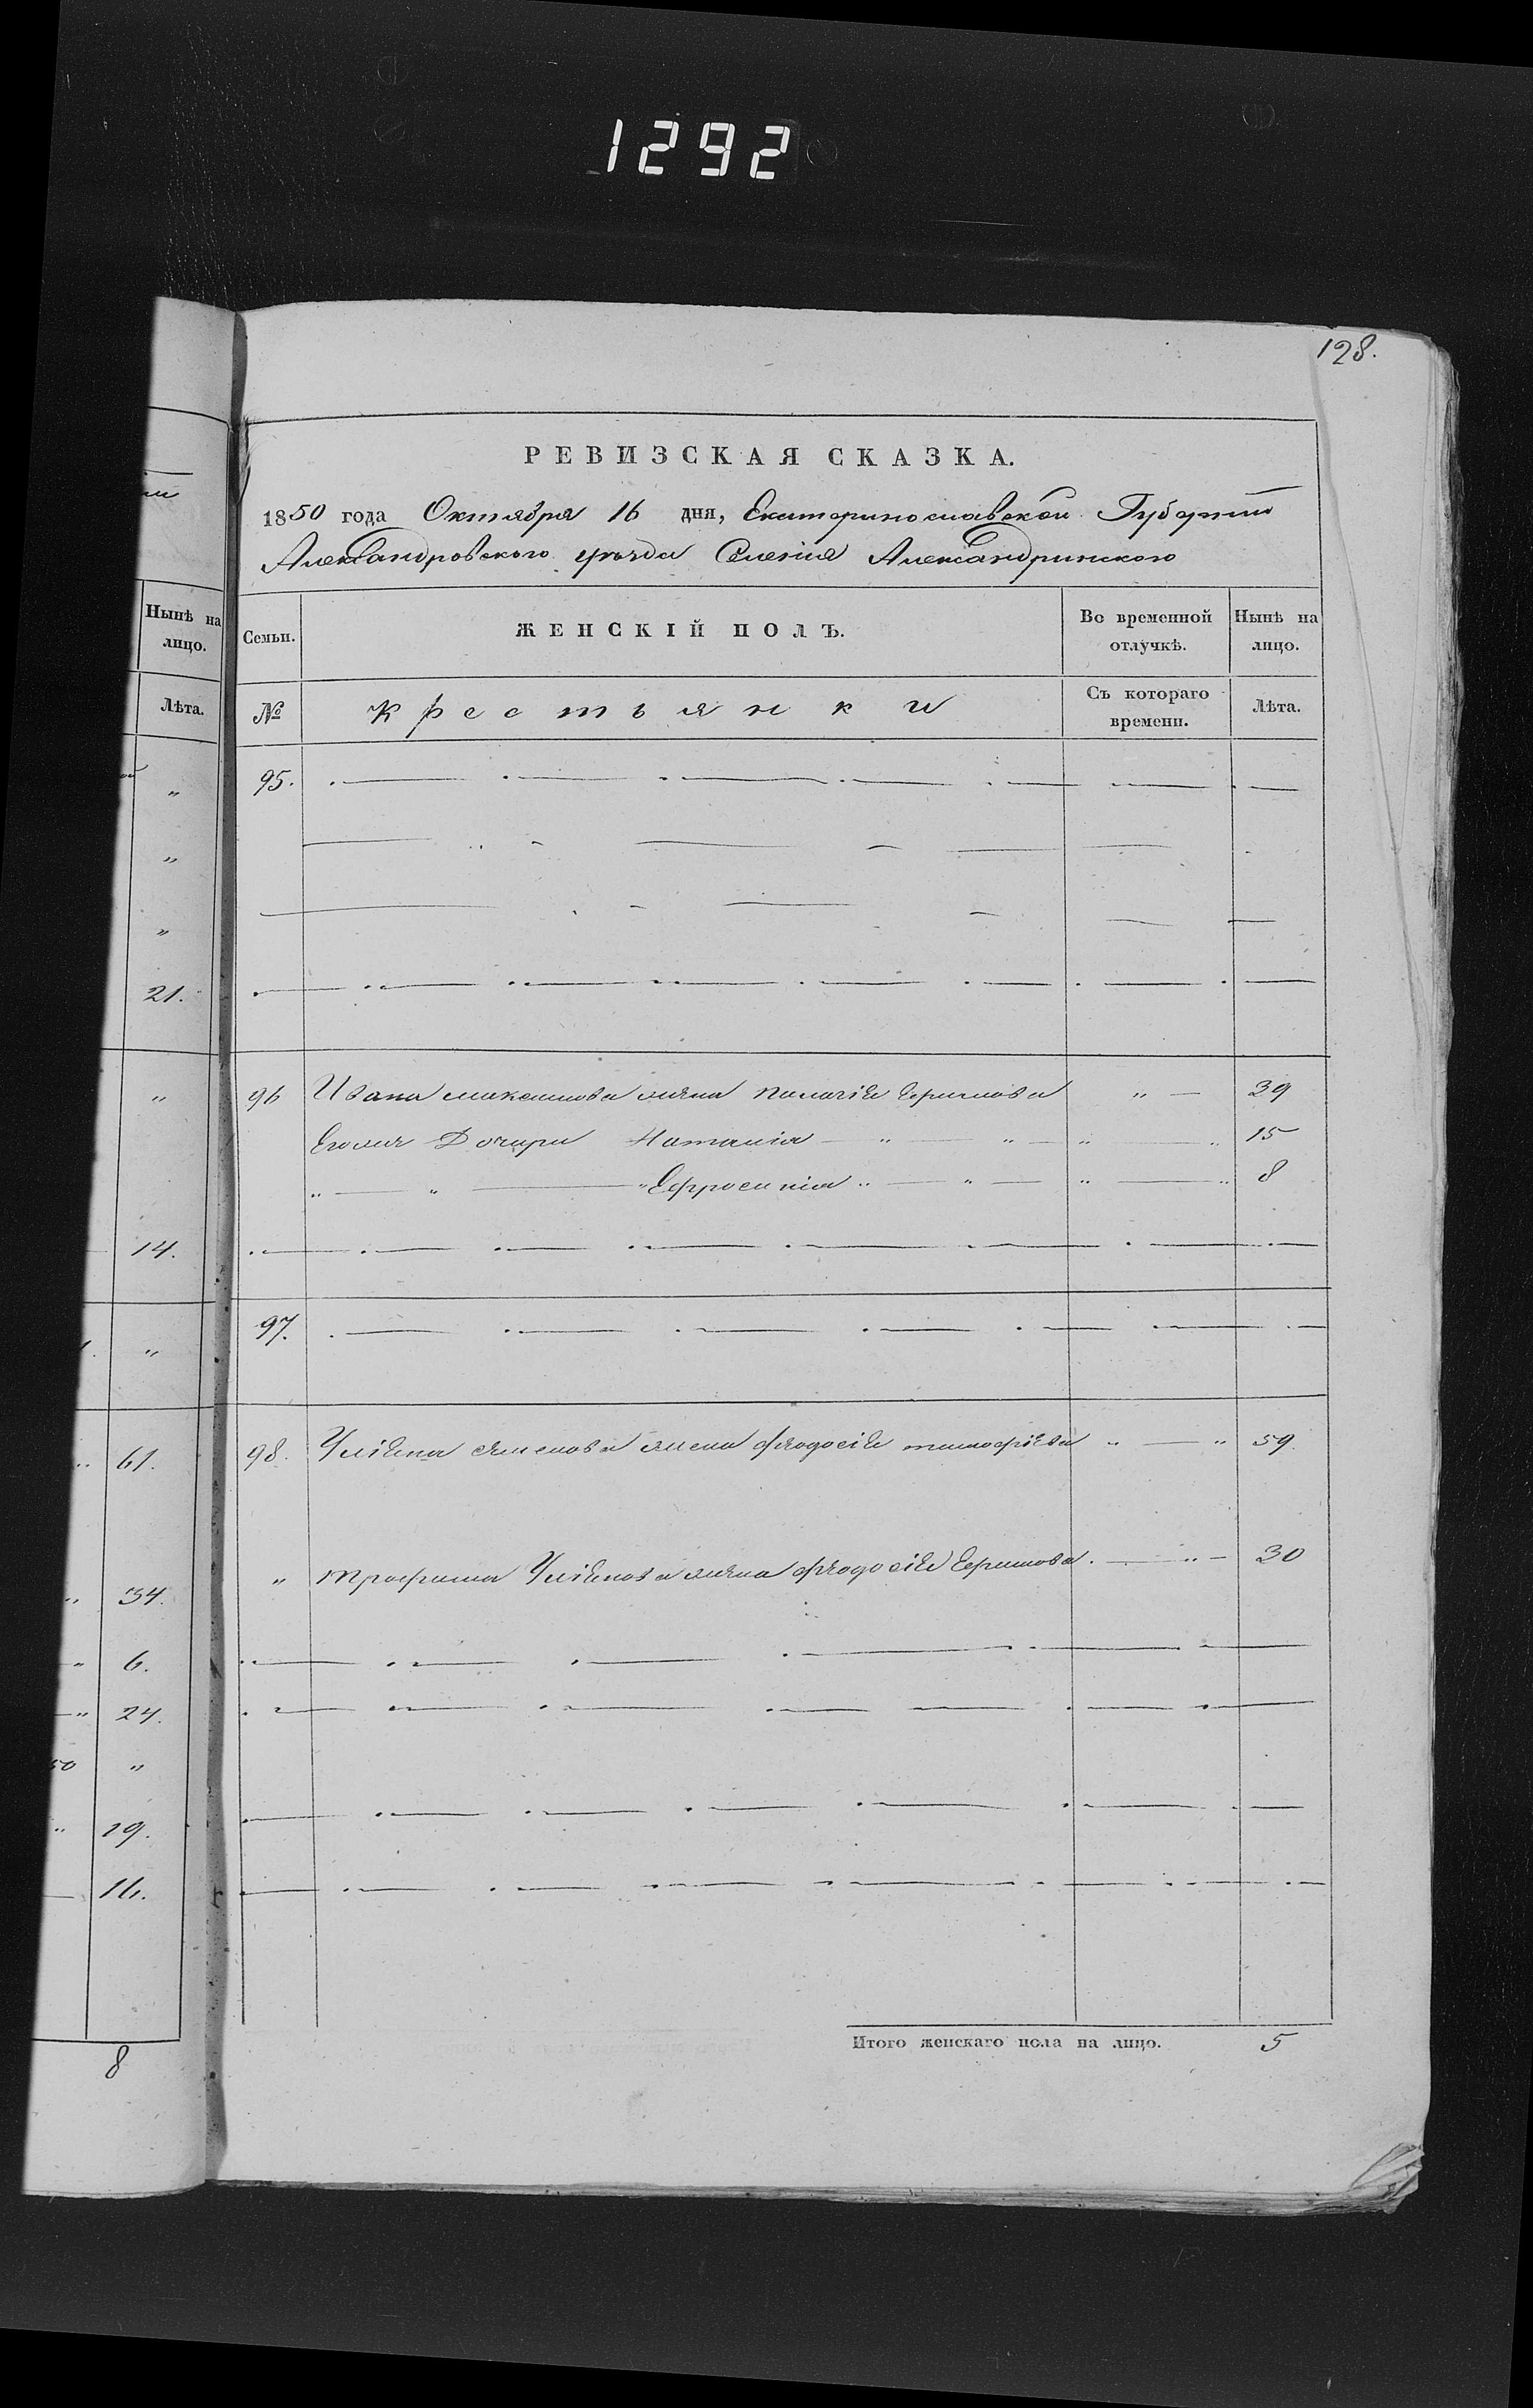 1292
128.
РЕВИЗСКАЯ СКАЗКА.
1850 года Октября 16 дня, Екатеринославской Губернии
Александровского уезда Селения Александринского
Нынѣ на лицо.
Лѣта.
„
„
„
21.
„
14.
„
61.
34.
6.
24.
„
19.
16.
8
Семьи. ЖЕНСКІЙ ПОЛЪ. Во временной отлучкѣ. Нынѣ на лицо.
№ Крестьянки Съ котораго времени. Лѣта.
95.
96 Ивана Максимова жена Палагія Ефимова „ — 39
Еголия Дочери Наталия — „ — „ — „ — „ 15
„ — „ — „ Ефросиния „ — „ — „ — „ 8
97.
98. жена Феодосія Тимофіева „ — „ 59.
„ Трофима жена Феодосія Ефимова. — „ — 30
Итого женскаго пола на лицо. 5